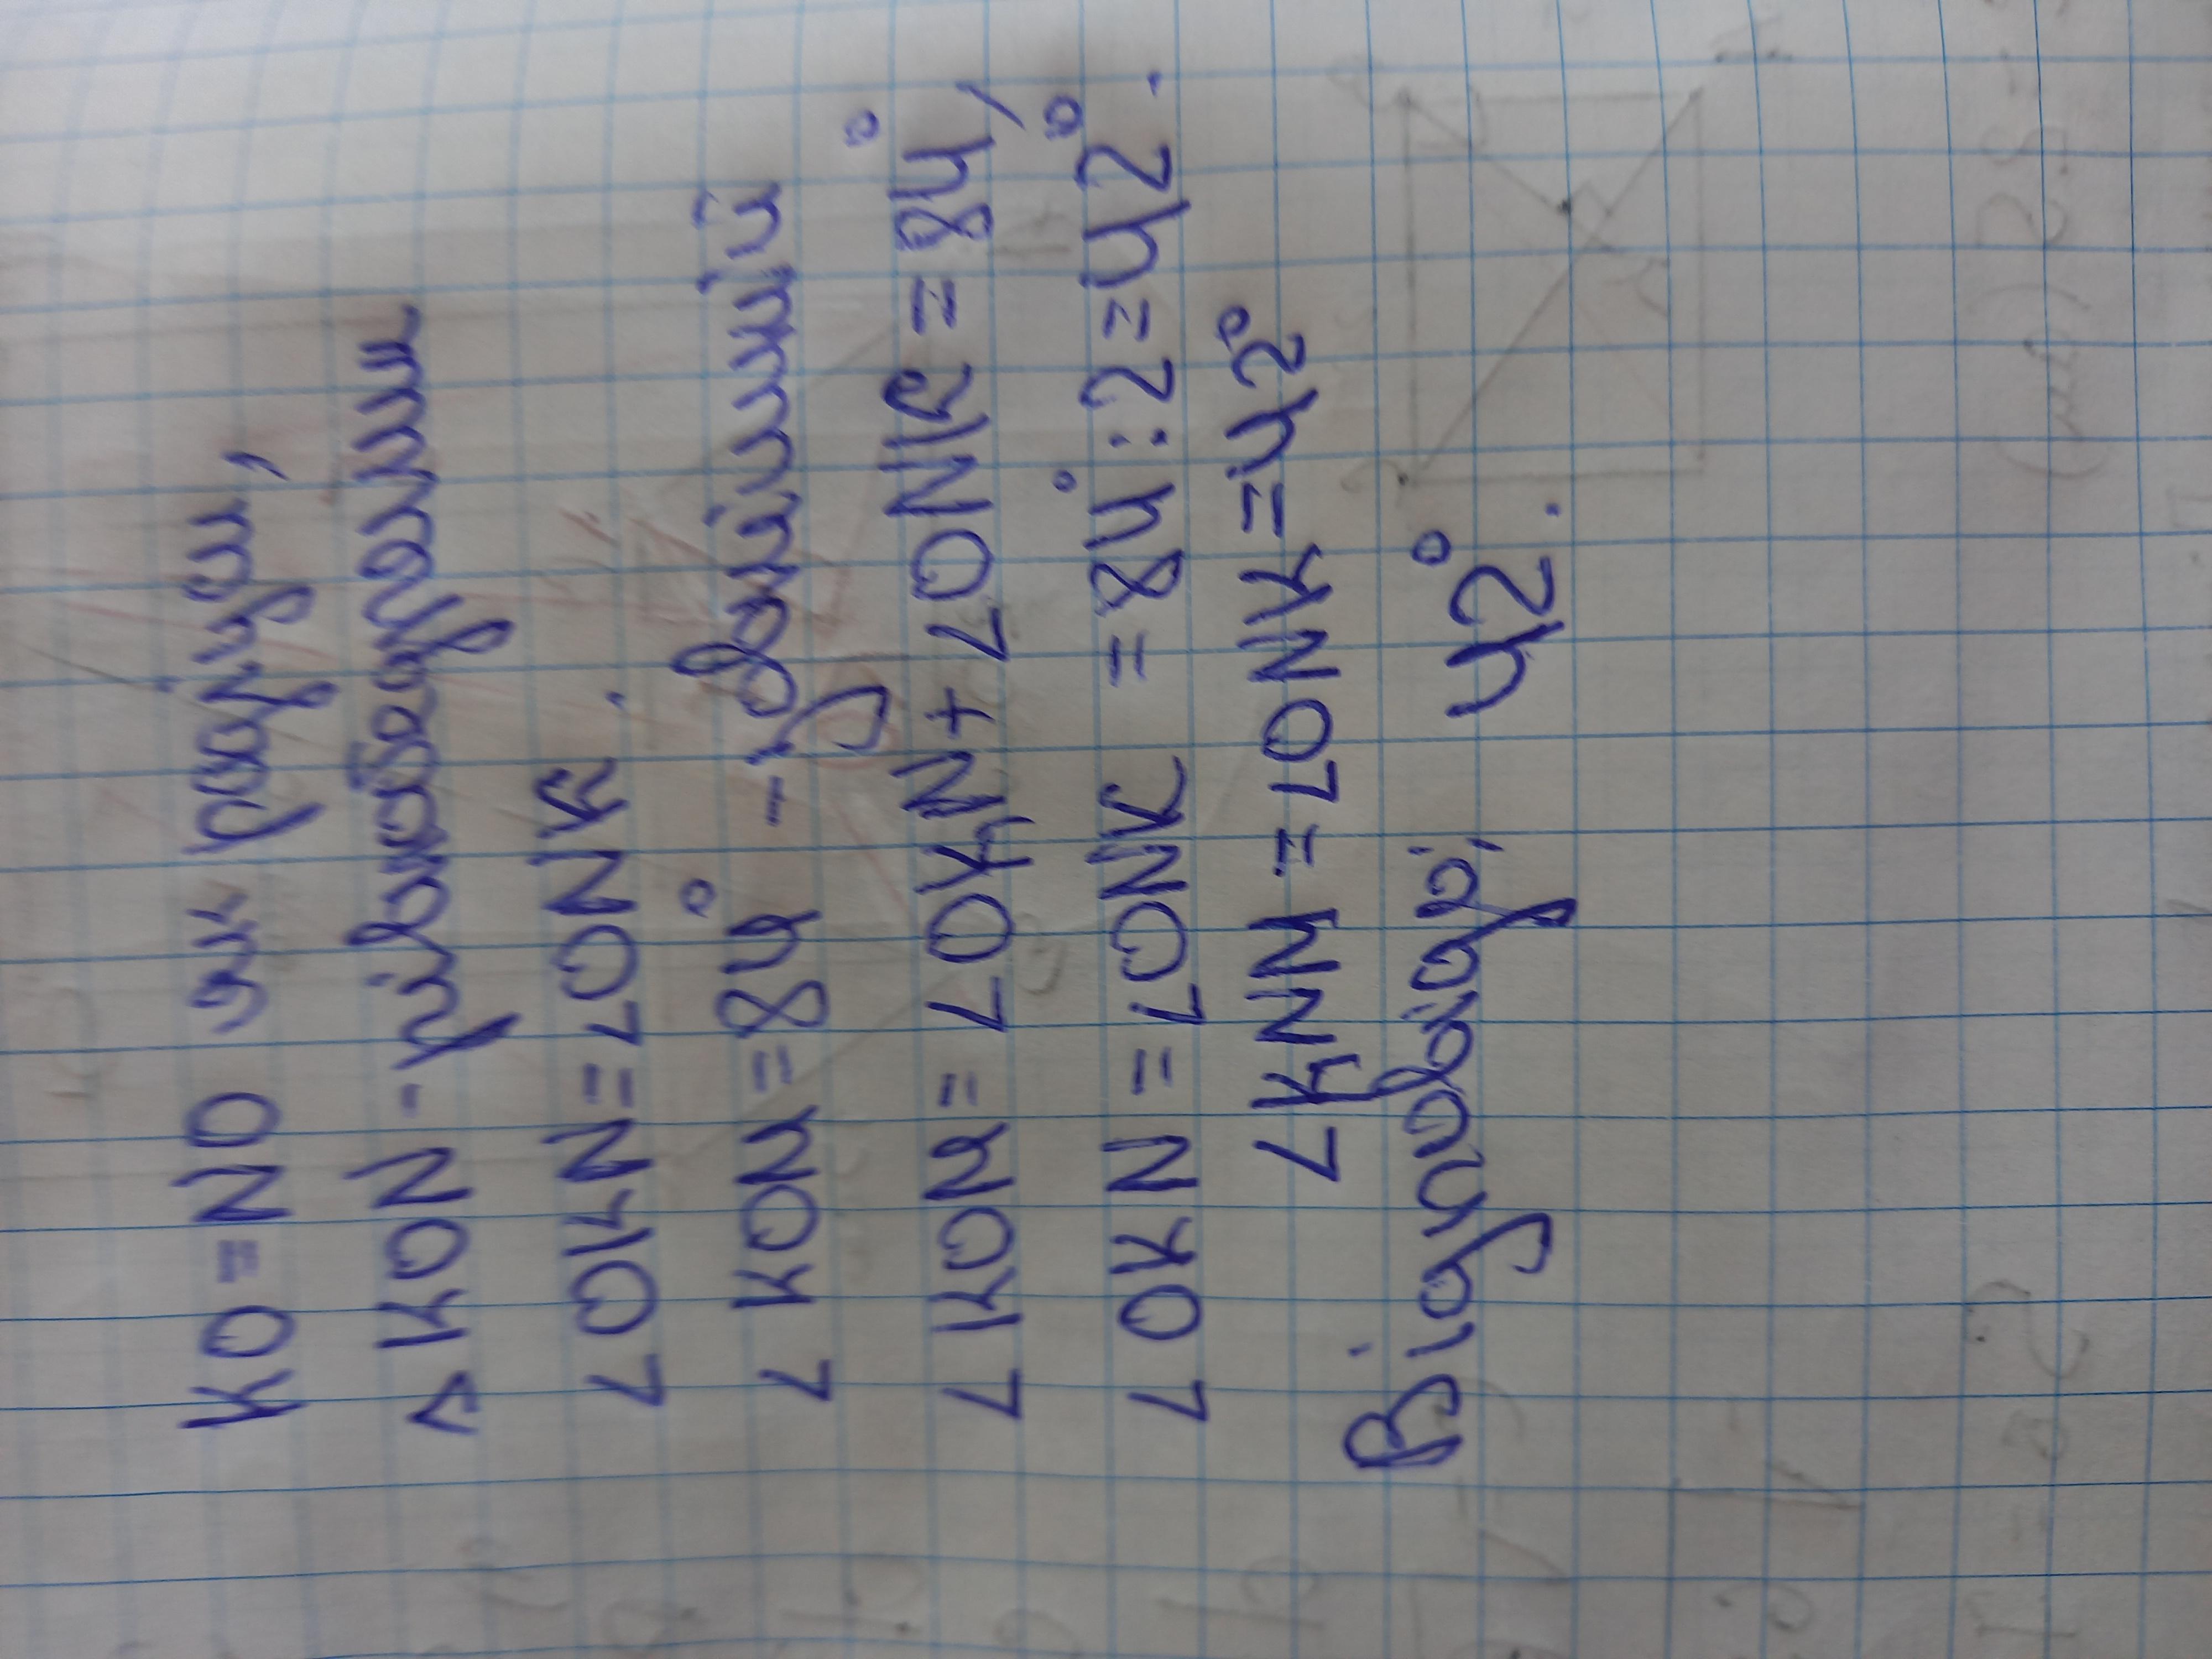 KO = NO як радіуси,
△ KON - рівнобедрений
∠OKN = ∠ONK.
∠ KOM = 84° - зовнішній
∠ KOM = ∠OKN + ∠ONK = 84°,
∠OKN = ∠ONK = 84° : 2 = 42°.
∠KNM = ∠ONK = 42°
Відповідь: 42°.